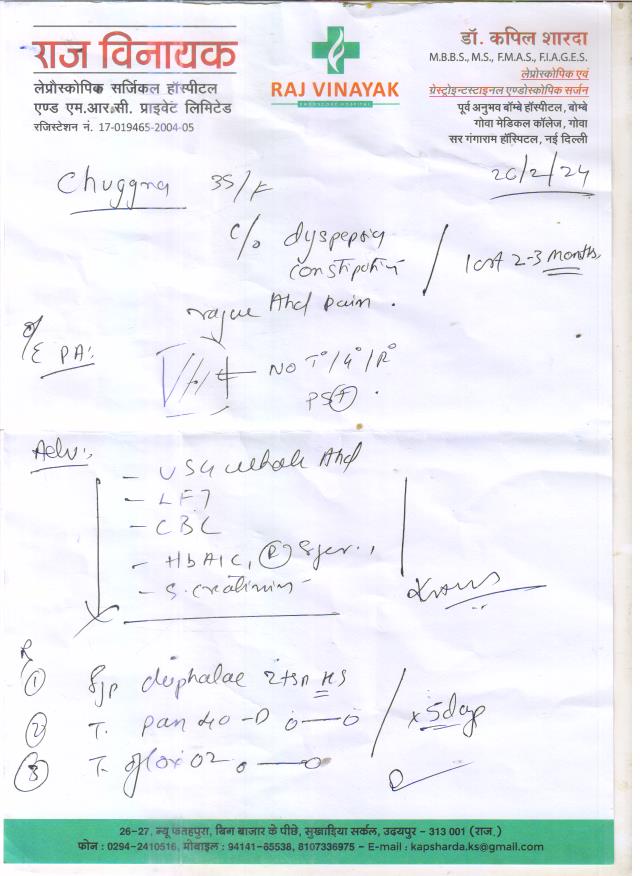 राज विनायक
लेप्रौस्कोपिक सर्जिकल हॉस्पीटल
एण्ड एम.आर.सी. प्राइवेट लिमिटेड
रजिस्टेशन नं. 17-019465-2004-05
RAJ VINAYAK
ENDOSCOPY HOSPITAL
डॉ. कपिल शारदा
M.B.B.S., M.S., F.M.A.S., F.I.A.G.E.S.
लेप्रोस्कोपिक एवं
ग्रेस्ट्रोइन्टस्टाइनल एण्डोस्कोपिक सर्जन
पूर्व अनुभव बॉम्बे हॉस्पीटल, बोम्बे
गोवा मेडिकल कॉलेज, गोवा
सर गंगाराम हॉस्पिटल, नई दिल्ली
35/F
C/o dyspepsia
constipation
last 2-3 months
vague Abd pain.
O/E PA:
NO T°/G°/R°
PS +
Adv:
- USG whole Abd
- LFT
- CBC
- HbA1C, (R) Sugar,
- S. creatinine
Rx
1 Syp duphalac 2tsp HS
2 T. pan 40-D o—o
x 5 days
3 T. o—o
26-27, न्यू फतहपुरा, बिग बाजार के पीछे, सुखाडिया सर्कल, उदयपुर - 313 001 (राज.)
फोन : 0294-2410516, मोबाइल : 94141-65538, 8107336975 - E-mail : kapsharda.ks@gmail.com